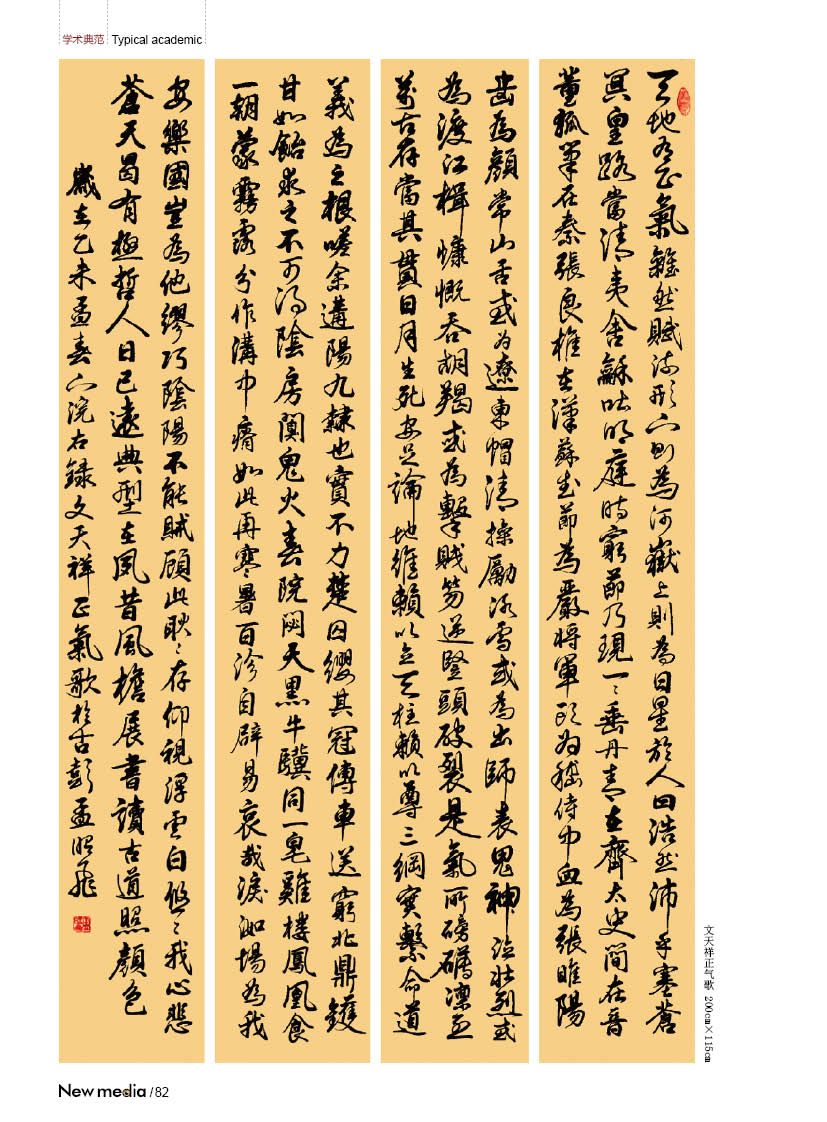 学术典范 Typical academic
天地有正氣雜然賦流形下則為河嶽上則為日星於人曰浩然沛乎塞蒼
冥皇路當清夷舍龢吐明庭時窮節乃現一々垂丹青在齊太史簡在晉
董狐筆在秦張良椎在漢蘇武節為嚴將軍頭為嵇侍中血為張睢陽
齒為顏常山舌或為遼東帽清操厲冰雪或為出師表鬼神泣壯烈或
為渡江楫慷慨吞胡羯或為擊賊笏逆豎頭破裂是氣所磅礴凜烈
萬古存當其貫日月生死安足論地維賴以立天柱賴以尊三綱實繫命道
義為之根嗟余遘陽九隸也實不力楚囚纓其冠傳車送窮北鼎鑊
甘如飴求之不可得陰房闃鬼火春院閟天黑牛驥同一皂雞棲鳳凰食
一朝蒙霧露分作溝中瘠如此再寒暑百沴自辟易哀哉沮洳場為我
安樂國豈為他繆巧陰陽不能賊顧此耿々存仰視浮雲白悠々我心悲
蒼天曷有極哲人日已遠典型在夙昔風檐展書讀古道照顏色
歲在乙未孟春下浣右錄文天祥正氣歌於古彭孟昭飛
文天祥正气歌 200cm×115cm
New media /82